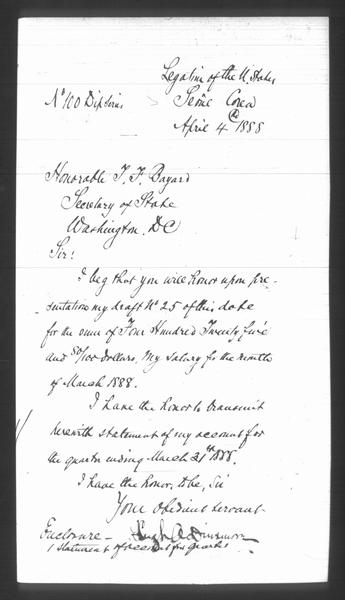 Legation of the U. States
No 100 Dip Series
Seoul Corea
April 4 1888
Honorable T. F. Bayard
Secretary of State
Washington. DC
Sir:
I beg that you will honor upon pre-
sentation my draft No 25 of this date
for the sum of Four Hundred Twenty five
and 80/100 dollars. My salary for the month
of March 1888.
I have the honor to transmit
herewith statement of my account for
the quarter ending March 31st 1888.
I have the honor, to be, Sir
Your obedient servant
Hugh A Dinsmore
Enclosure -
1 Statement of account for quarter